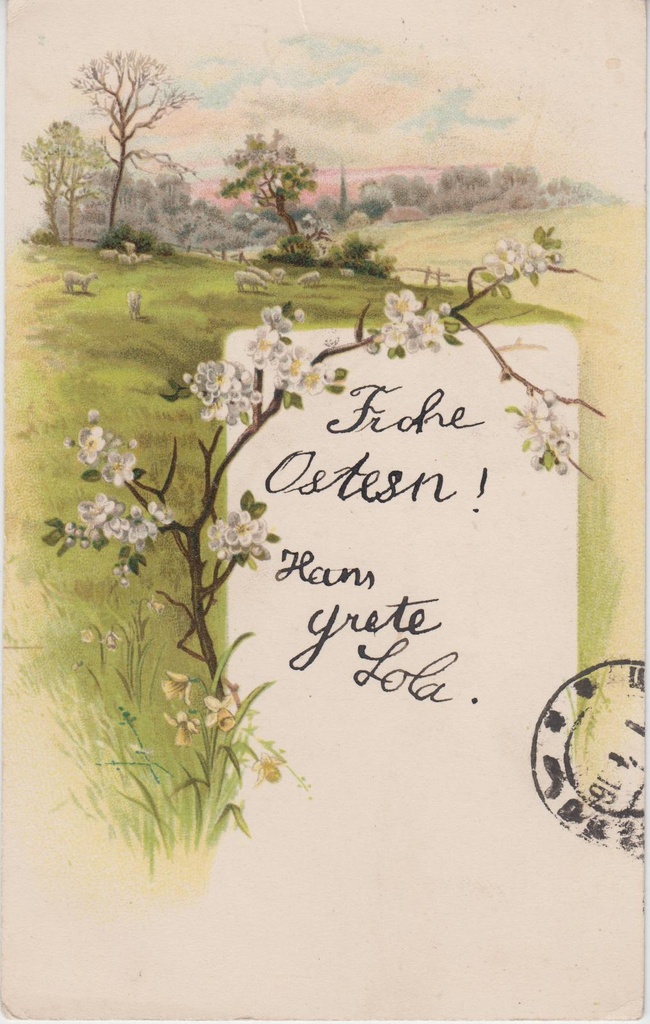 Frohe
Ostern!
Hans
Grete
Lola.